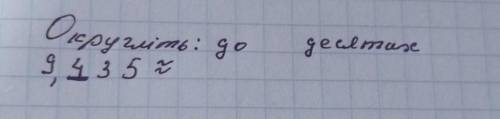 Округліть: до десятах
9,435 ≈